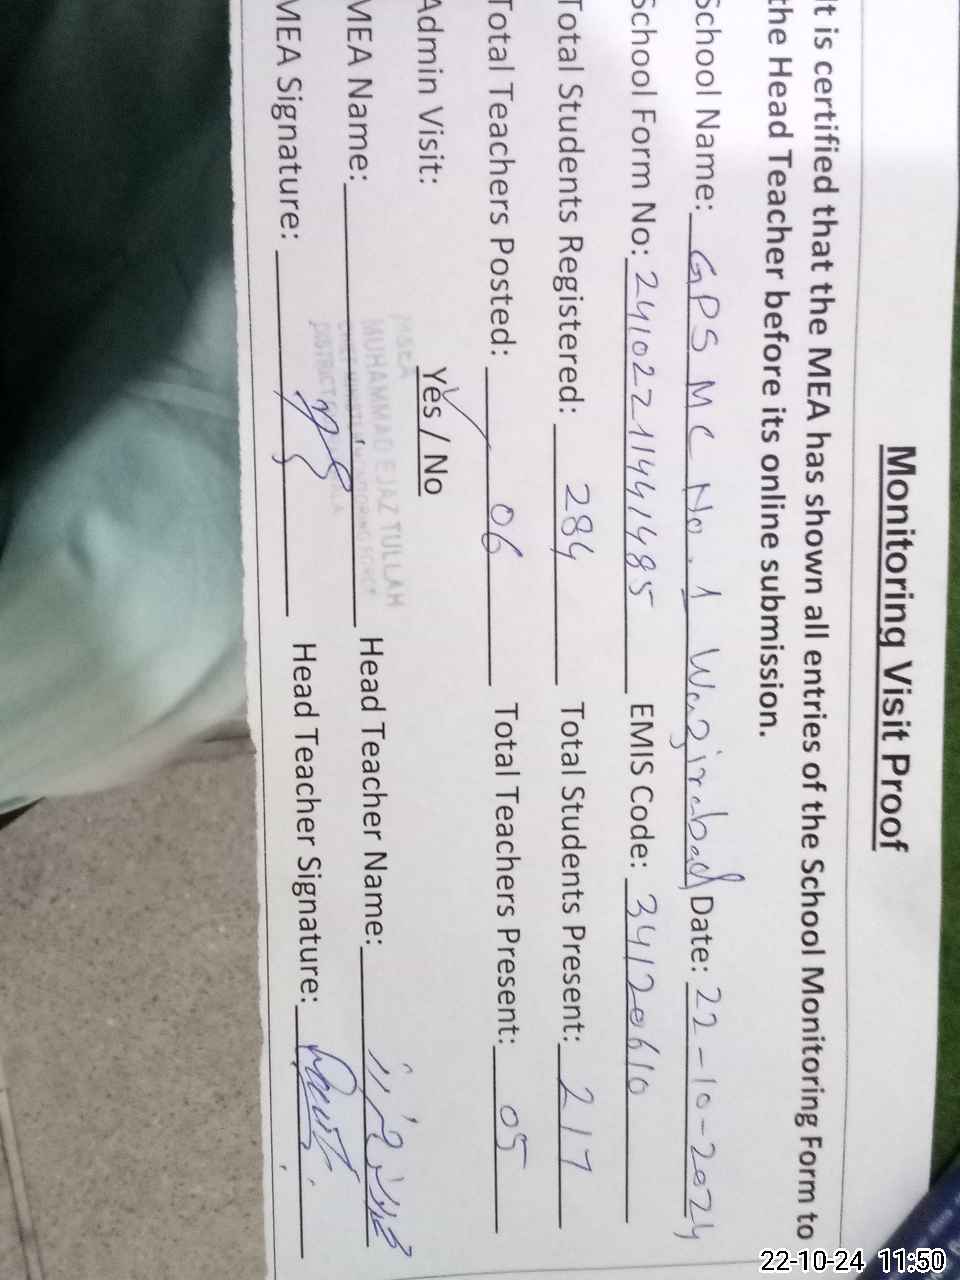 Monitoring Visit Proof
It is certified that the MEA has shown all entries of the School Monitoring Form to
the Head Teacher before its online submission.
School Name: GPS MC No. 1 Wazirabad Date: 22-10-2024
School Form No: 24102211441485 EMIS Code: 34120610
Total Students Registered: 284 Total Students Present: 217
Total Teachers Posted: 06 Total Teachers Present: 05
Admin Visit: Yes / No
MUHAMMAD EJAZ TULLAH
MEA Name: Head Teacher Name:
DISTRICT
MEA Signature: Head Teacher Signature:
22-10-24 11:50